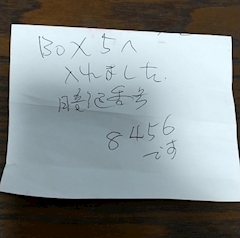 BOX5へ
入れました
暗証番号
8456
です